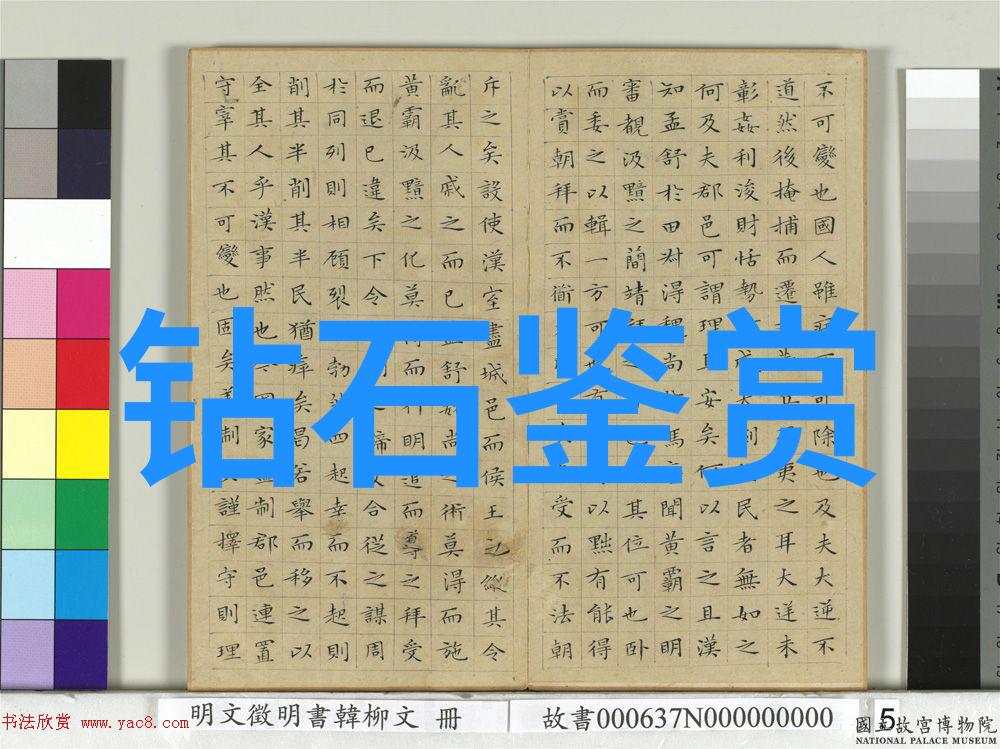 不可變也國人雖病可除也及夫大逆不
道然後掩捕而遷夷之耳大逆未
彰姦利浚財怙勢民者無如之
何及夫郡邑可謂理且安矣何以言之且漢
知孟舒於田叔得魏尚馮聞黃霸之明
審覩汲黯之簡靖拜之其位可也臥
而委之以輯一方可也有以黜有能得
以賞朝拜而不受而不法朝
斥之矣設使漢室盡城邑而侯王之縱其令
亂其人戚之而已孟舒魏尚之術莫得而施
黃霸汲黯之化莫得而行明追而導之拜受
而退已違矣下令締交合從之謀周
於同列則相顧裂勃然四起幸而不起則
削其半削其半民猶瘁矣曷若舉而移之以
全其人乎漢事然也今國家盡制郡邑連置
守宰其不可變也固矣善制謹擇守則理
钻石鉴赏
明文徵明書韓柳文 冊
故書000637N000000000
5
書法欣赏 www.yac8.com
國立故宮博物院
NATIONAL PALACE MUSEUM